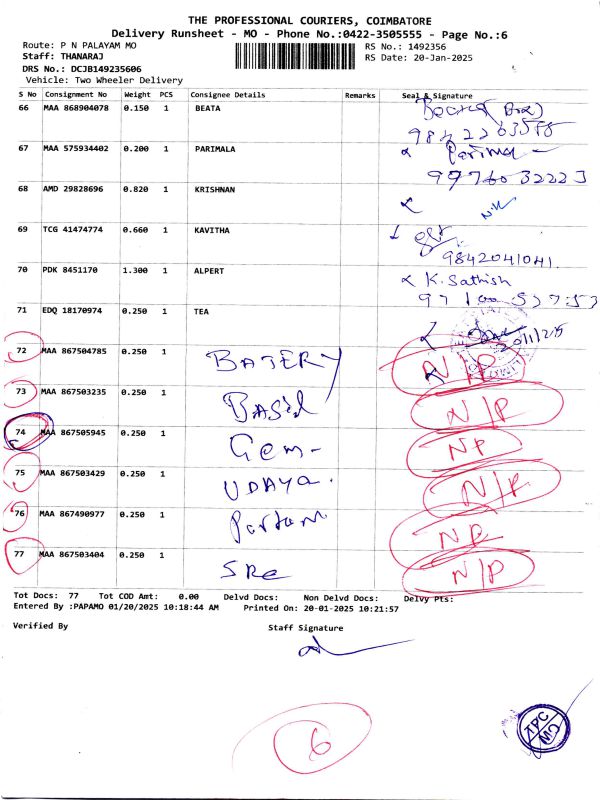 THE PROFESSIONAL COURIERS, COIMBATORE
Delivery Runsheet - MO - Phone No.:0422-3505555 - Page No.:6
Route: P N PALAYAM MO RS No.: 1492356
Staff: THANARAJ RS Date: 20-Jan-2025
DRS No.: DCJB149235606
Vehicle: Two Wheeler Delivery
S No Consignment No Weight PCS Consignee Details Remarks Seal & Signature
66 MAA 868904078 0.150 1 BEATA
67 MAA 575934402 0.200 1 PARIMALA Parima
9976032223
68 AMD 29828696 0.820 1 KRISHNAN
69 TCG 41474774 0.660 1 KAVITHA
9842041041
70 PDK 8451170 1.300 1 ALPERT K. Sathish
71 EDQ 18170974 0.250 1 TEA
72 MAA 867504785 0.250 1 BATERY N/P
73 MAA 867503235 0.250 1 Basil N/P
74 MAA 867505945 0.250 1 Gem NP
75 MAA 867503429 0.250 1 UDAYA. N/P
76 MAA 867490977 0.250 1 NP
77 MAA 867503404 0.250 1 SRe N/P
Tot Docs: 77 Tot COD Amt: 0.00 Delvd Docs: Non Delvd Docs: Delvy Pts:
Entered By :PAPAMO 01/20/2025 10:18:44 AM Printed On: 20-01-2025 10:21:57
Verified By Staff Signature
6
TPC
MO